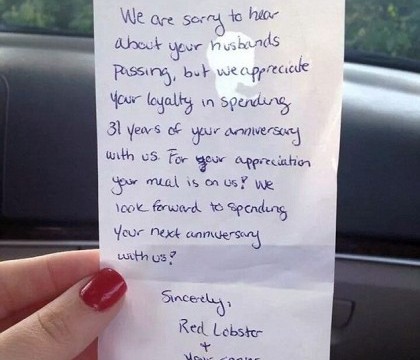 We are sorry to hear
about your husbands
passing, but we appreciate
your loyalty in spending
31 years of your anniversary
with us. For your appreciation
your meal is on us! We
look forward to spending
your next anniversary
with us!
Sincerely,
Red Lobster
+
your